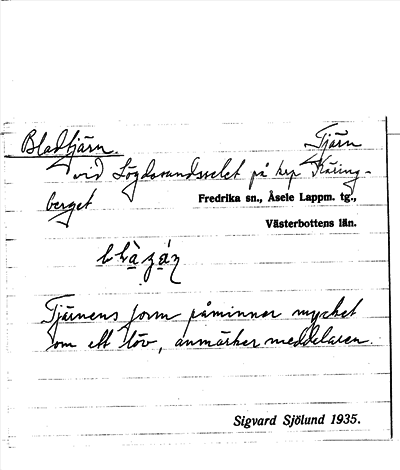 Bladtjärn. Tjärn
vid Lögdsrandsselet på krp Käring-
berget
Fredrika sn., Åsele Lappm. tg.,
Västerbottens län.
Tjärnens form påminner mycket
om ett löv, anmärker meddelaren.
Sigvard Sjölund 1935.